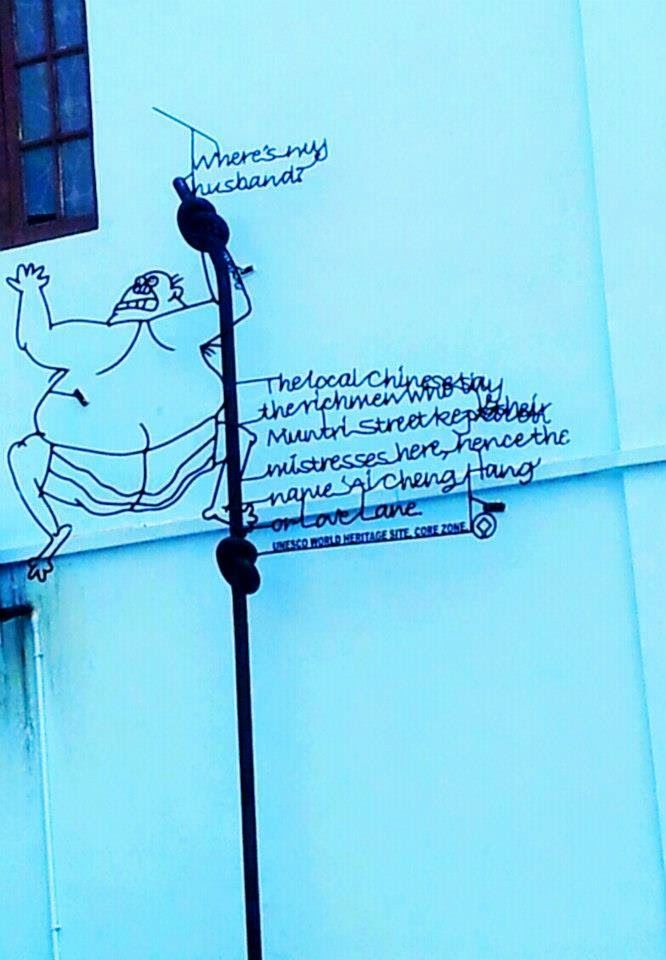 Where's my
husband?
The local Chinese say
the rich men who
Muntri Street kept their
mistresses here, hence the
name 'Ai Cheng Hang'
or Love Lane
UNESCO WORLD HERITAGE SITE, CORE ZONE